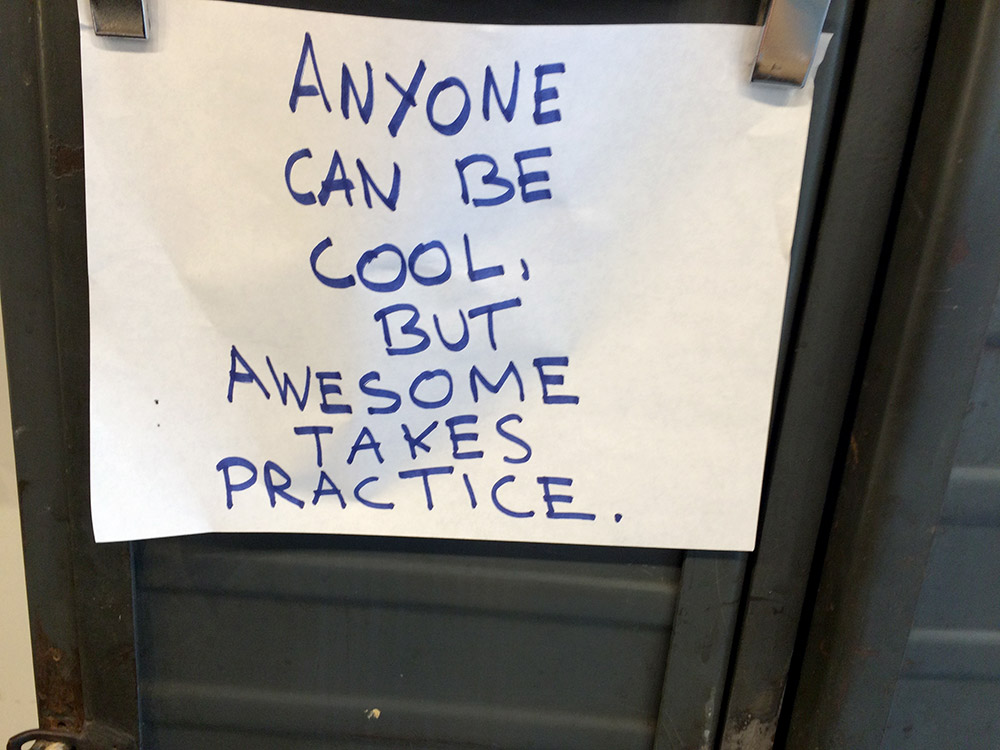 ANYONE
CAN BE
COOL,
BUT
AWESOME
TAKES
PRACTICE.